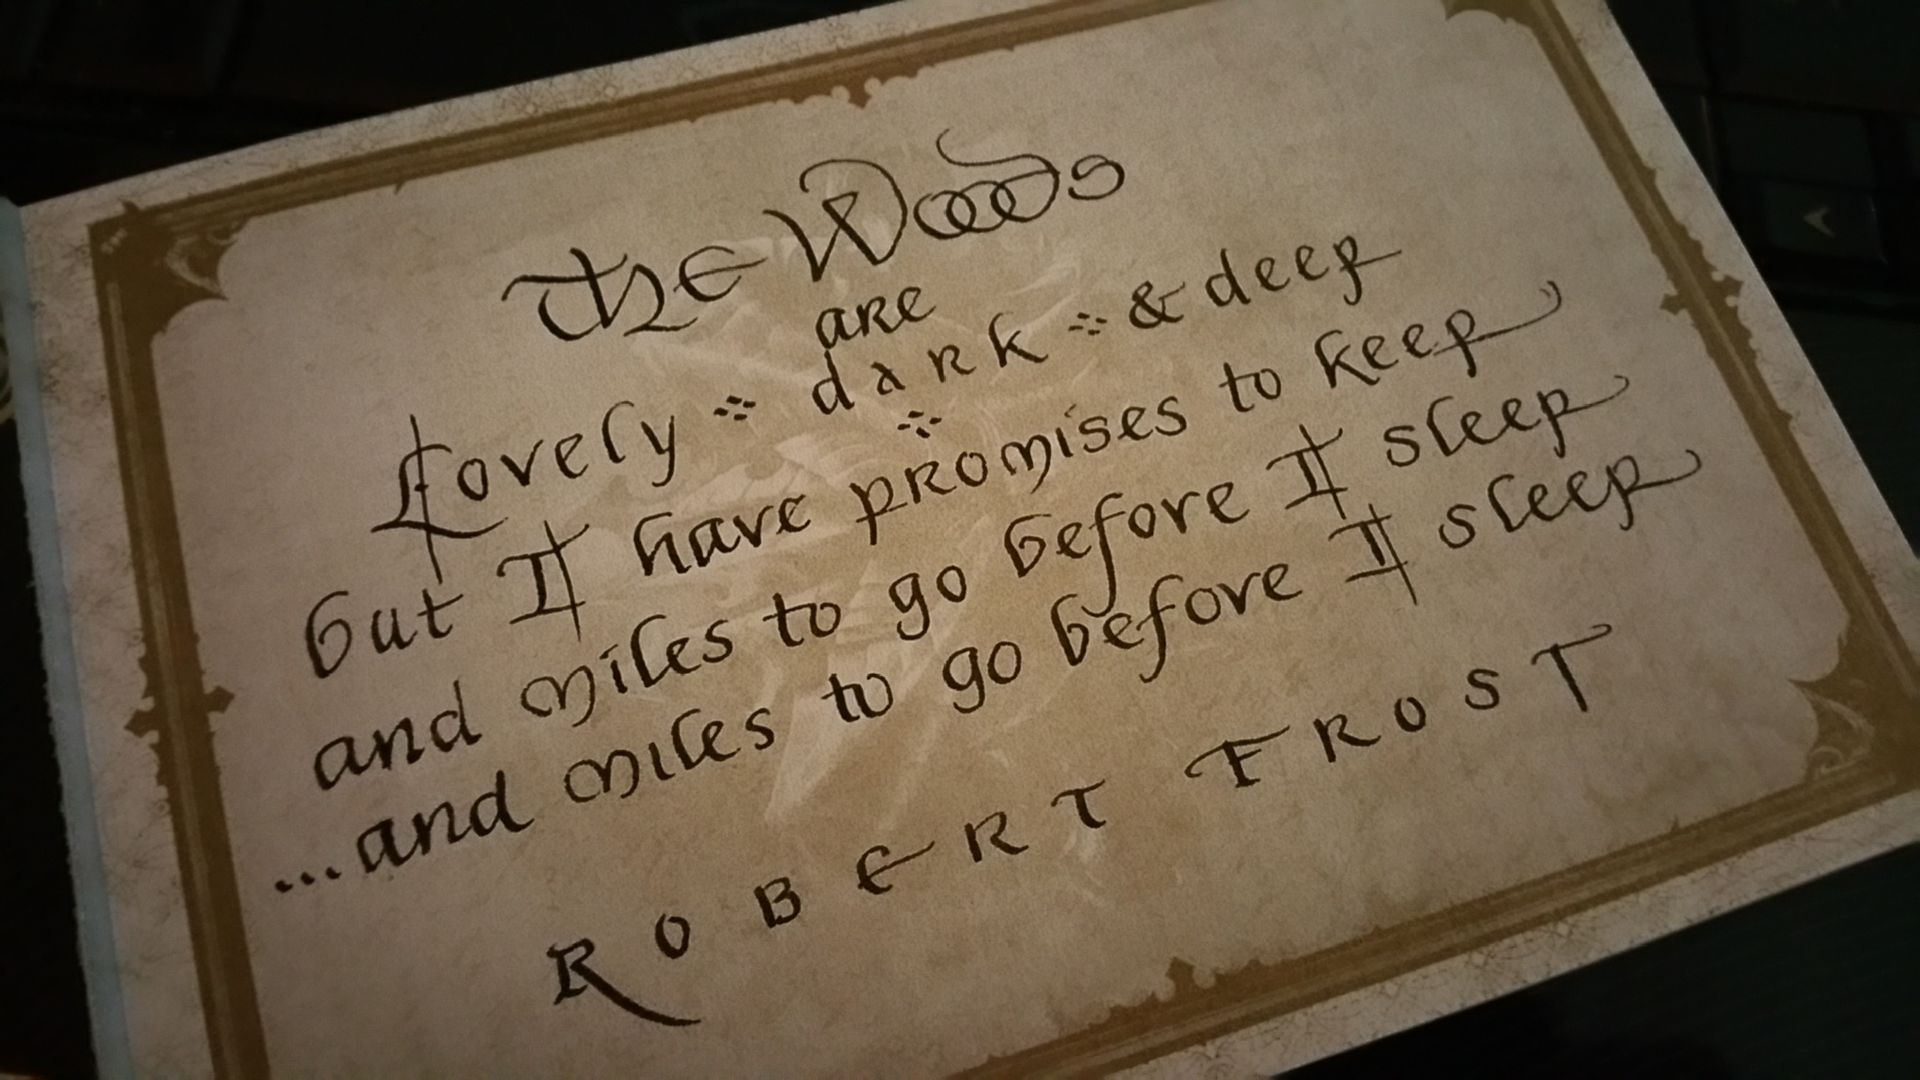 The Woods
are
Lovely ⁘ dark ⁘ & deep
⁘
but I have promises to keep
and miles to go before I sleep
...and miles to go before I sleep
ROBERT FROST